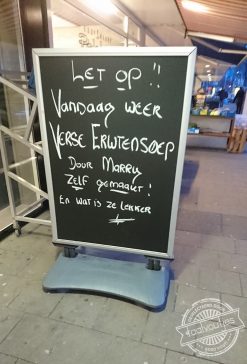 LET OP !!
VANDAAG WEER
VERSE ERWTENSOEP
DOOR MARRY
ZELF GEMAAKT !
EN WAT IS ZE LEKKER